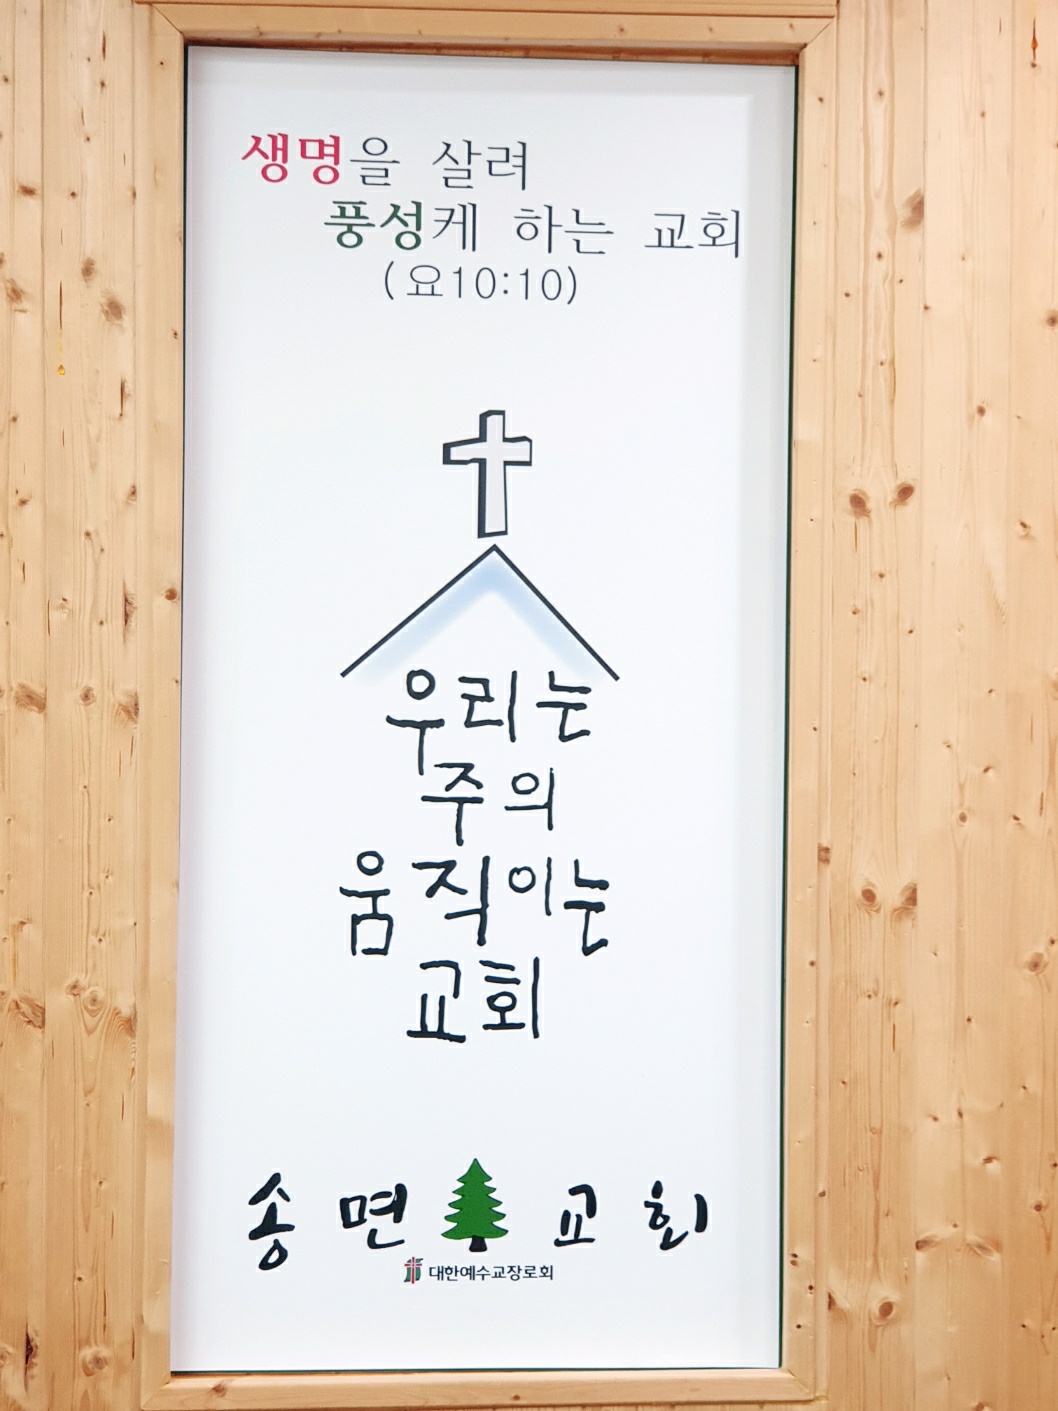 생명을 살려
풍성케 하는 교회
(요10:10)
우리는
주의
움직이는
교회
송면 교회
대한예수교장로회